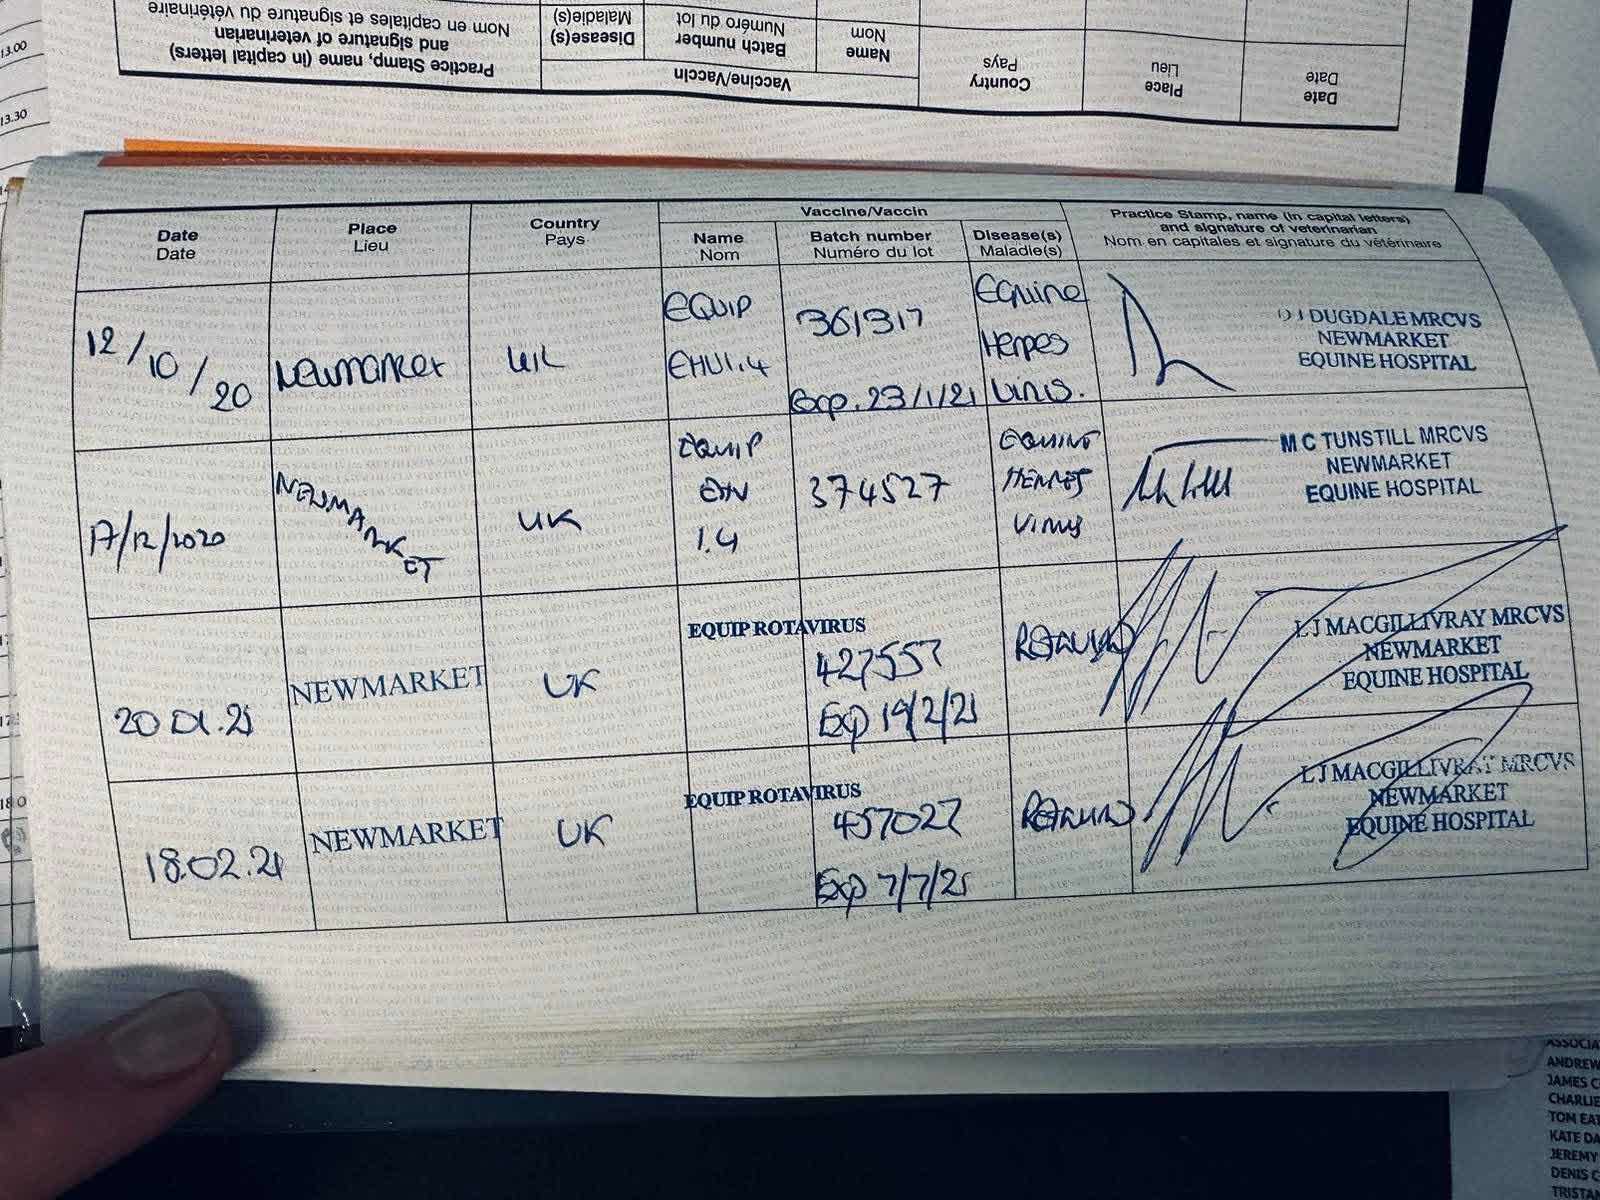 13.00
13.30
Practice Stamp, name (in capital letters)
and signature of veterinarian
Nom en capitales et signature du vétérinaire
Vaccine/Vaccin
Disease(s)
Maladie(s)
Batch number
Numéro du lot
Name
Nom
Country
Pays
Place
Lieu
Date
Date
Date
Date
Place
Lieu
Country
Pays
Vaccine/Vaccin
Name
Nom
Batch number
Numéro du lot
Disease(s)
Maladie(s)
Practice Stamp, name (in capital letters)
and signature of veterinarian
Nom en capitales et signature du vétérinaire
12/10/20
Newmarket
UK
EQUIP
EHV1.4
361317
Exp. 23/1/21
Equine
Herpes
Virus.
D J DUGDALE MRCVS
NEWMARKET
EQUINE HOSPITAL
17/12/2020
NEWMARKET
UK
EQUIP
EHV
1.4
374527
EQUINE
HERPES
VIRUS
M C TUNSTILL MRCVS
NEWMARKET
EQUINE HOSPITAL
20.01.21
NEWMARKET
UK
EQUIP ROTAVIRUS
427557
Exp 19/2/21
L J MACGILLIVRAY MRCVS
NEWMARKET
EQUINE HOSPITAL
18.02.21
NEWMARKET
UK
EQUIP ROTAVIRUS
457027
Exp 7/7/21
L J MACGILLIVRAY MRCVS
NEWMARKET
EQUINE HOSPITAL
ANDREW
JAMES
CHARLIE
TOM
KATE
JEREMY
DENIS